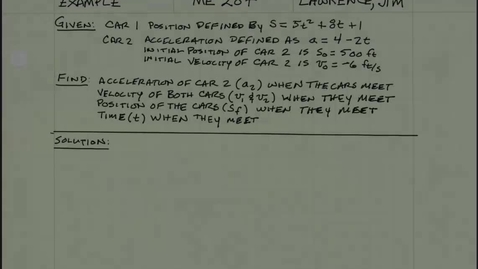 EXAMPLE ME 207 LAWRENCE, JIM
GIVEN: CAR 1 POSITION DEFINED BY S = 5t² + 8t + 1
CAR 2 ACCELERATION DEFINED AS a = 4 - 2t
INITIAL POSITION OF CAR 2 IS S₀ = 500 ft
INITIAL VELOCITY OF CAR 2 IS v₀ = -6 ft/s
FIND: ACCELERATION OF CAR 2 (a₂) WHEN THE CARS MEET
VELOCITY OF BOTH CARS (v₁ & v₂) WHEN THEY MEET
POSITION OF THE CARS (Sf) WHEN THEY MEET
TIME (t) WHEN THEY MEET
SOLUTION: